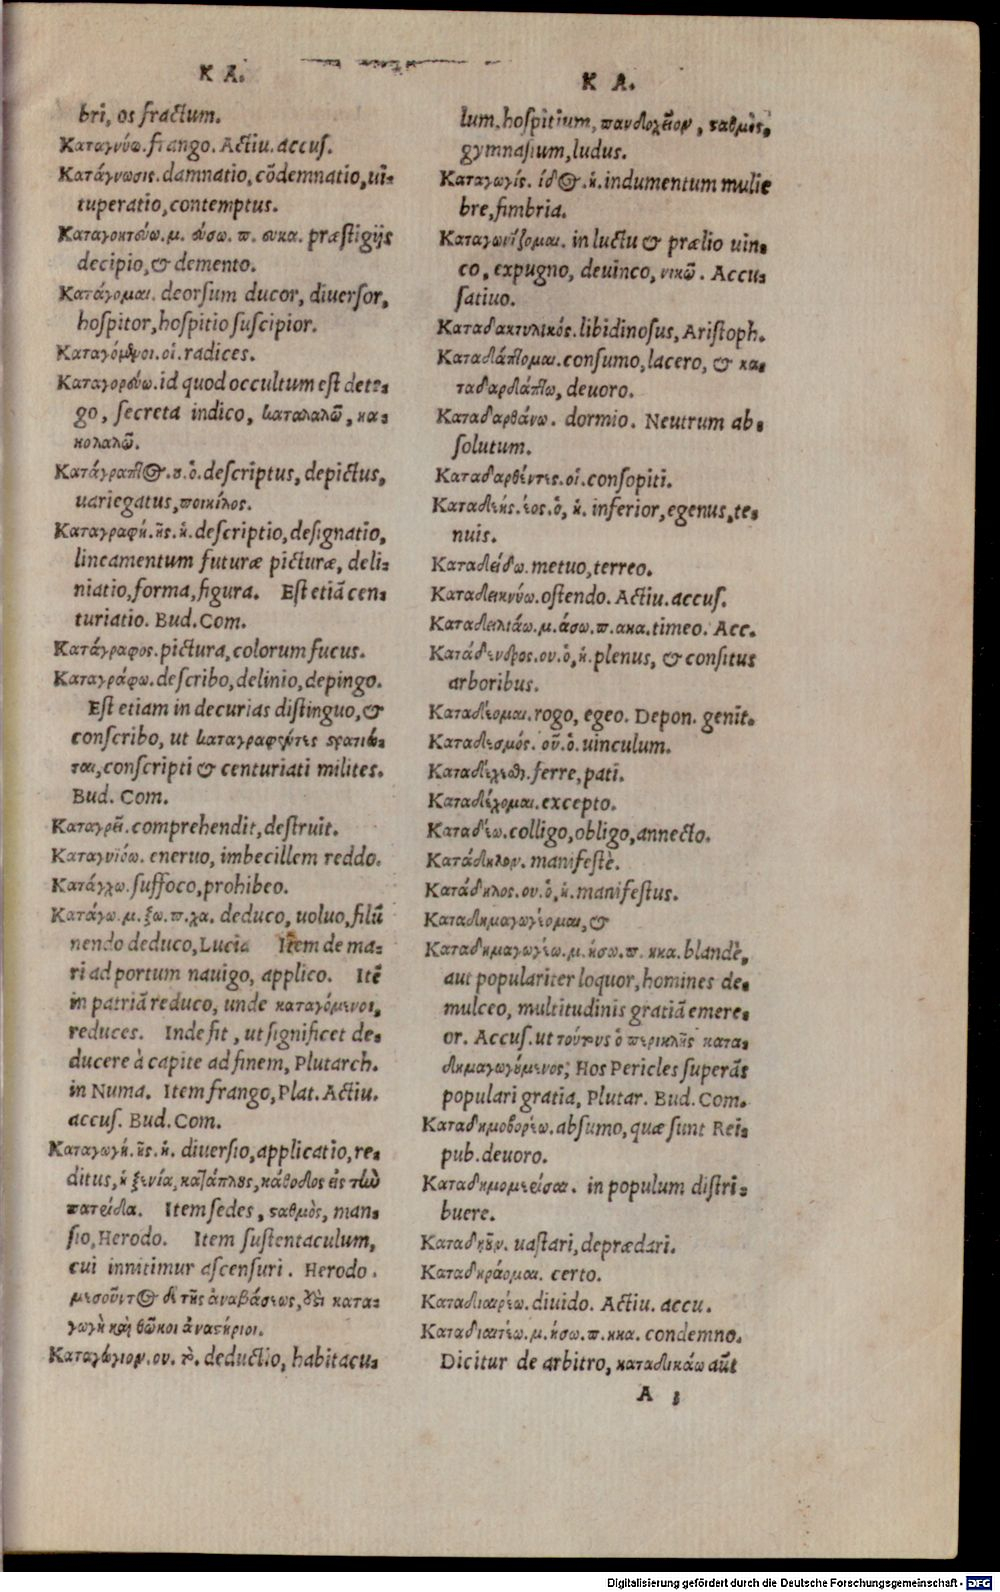 K A.
bri, os fractum.
Καταγνύω. frango. Actiu. accus.
Κατάγνωσις. damnatio, cōdemnatio, ui-
tuperatio, contemptus.
Καταγοητεύω. μ. εύσω. π. ευκα. præstigijs
decipio, & demento.
Κατάγομαι. deorsum ducor, diuersor,
hospitor, hospitio suscipior.
Καταγόμενοι. οἱ. radices.
Καταγορεύω. id quod occultum est dete-
go, secreta indico, καταλαλῶ, κα-
κολαλῶ.
Κατάγραπτος. ου. ὁ. descriptus, depictus,
uariegatus, ποικίλος.
Καταγραφή. ῆς. ἡ. descriptio, designatio,
lineamentum futuræ picturæ, deli-
niatio, forma, figura. Est etiā cen-
turiatio. Bud. Com.
Κατάγραφος. pictura, colorum fucus.
Καταγράφω. describo, delinio, depingo.
Est etiam in decurias distinguo, &
conscribo, ut καταγραφέντες στρατιῶ-
ται, conscripti & centuriati milites.
Bud. Com.
Καταγρεῖ. comprehendit, destruit.
Καταγυιόω. eneruo, imbecillem reddo.
Κατάγχω. suffoco, prohibeo.
Κατάγω. μ. ξω. π. χα. deduco, uoluo, filū
nendo deduco, Lucia Itēm de ma-
ri ad portum nauigo, applico. Itē
in patriā reduco, unde καταγόμενοι,
reduces. Inde fit, ut significet de-
ducere à capite ad finem, Plutarch.
in Numa. Item frango, Plat. Actiu.
accus. Bud. Com.
Καταγωγή. ῆς. ἡ. diuersio, applicatio, re-
ditus, ἡ ξενία, κατάπλους, κάθοδος εἰς τὼ
πατρίδα. Item sedes, σταθμὸς, man-
sio, Herodo. Item sustentaculum,
cui innitimur ascensuri. Herodo.
μεσοῦντος δέ τῆς ἀναβάσεως, ἐστὶ κατα-
γωγὴ καὶ θῶκοι ἀναστήριοι.
Καταγώγιον. ου. τὸ. deductio, habitacu-
K A.
lum, hospitium, πανδοχεῖον, σταθμὸς,
gymnasium, ludus.
Καταγωγίς. ίδος. ἡ. indumentum mulie
bre, fimbria.
Καταγωνίζομαι. in luctu & prælio uin-
co, expugno, deuinco, νικῶ. Accu-
satiuo.
Καταδακτυλικός. libidinosus, Aristoph.
Καταδάπτομαι. consumo, lacero, & κα-
ταδαρδάπτω, deuoro.
Καταδαρθάνω. dormio. Neutrum ab-
solutum.
Καταδαρθέντες. οἱ. consopiti.
Καταδεής. έος. ὁ, ἡ. inferior, egenus, te-
nuis.
Καταδείδω. metuo, terreo.
Καταδεικνύω. ostendo. Actiu. accus.
Καταδειλιάω. μ. άσω. π. ακα. timeo. Acc.
Κατάδενδρος. ου. ὁ, ἡ. plenus, & consitus
arboribus.
Καταδέομαι. rogo, egeo. Depon. genit.
Καταδεσμός. οῦ. ὁ. uinculum.
Καταδέχεσθαι. ferre, pati.
Καταδέχομαι. excepto.
Καταδέω. colligo, obligo, annecto.
Κατάδηλον. manifestè.
Κατάδηλος. ου. ὁ, ἡ. manifestus.
Καταδημαγωγέομαι, &
Καταδημαγωγέω. μ. ήσω. π. ηκα. blandè,
aut populariter loquor, homines de-
mulceo, multitudinis gratiā emere-
or. Accus. ut τούτους ὁ περικλῆς κατα-
δημαγωγούμενος, Hos Pericles superās
populari gratia, Plutar. Bud. Com.
Καταδημοβορέω. absumo, quæ sunt Rei-
pub. deuoro.
Καταδημομερίσαι. in populum distri-
buere.
Καταδῃοῦν. uastari, deprædari.
Καταδηράομαι. certo.
Καταδιαιρέω. diuido. Actiu. accu.
Καταδιαιτάω. μ. ήσω. π. ηκα. condemno.
Dicitur de arbitro, καταδικάω aūt
A
Digitalisierung gefördert durch die Deutsche Forschungsgemeinschaft - DFG